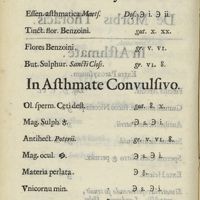 Essen. asthmatica Morts. Dos. ℈ i. ℈ ii
Tinct. flor. Benzoini. gut. x. xx.
Flores Benzoini. gr. v. vi.
But. Sulphur. Sancti Clos. gr. vi. 8.
In Asthmate Convulsivo.
Ol. sperm. Cęti dest. gut. 8. x.
Mag. Sulph ℈ ɿ. ℈ i.
Antihect. Poterii. gr. v. vi.
Mag. ocul. ℈ ɿ. ℈ i.
Materia perlata. ℈ ɿ. ℈ i.
Vnicornu min. ℈ ɿ. ℈ i.